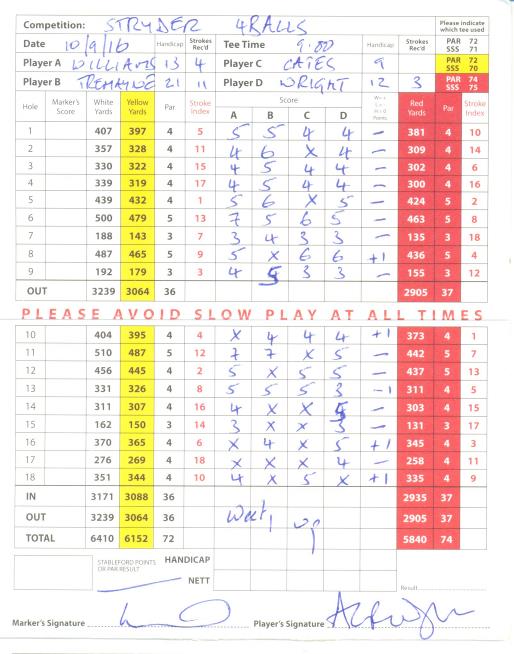 Competition: STRYDER 4BALLS Please indicate which tee used
Date 10/9/16 Handicap Strokes Rec'd Tee Time 9.00 Handicap Strokes Rec'd PAR 72 SSS 71
Player A WILLIAMS 13 4 Player C CATES 9 PAR 72 SSS 70
Player B TREMAYNE 21 11 Player D WRIGHT 12 3 PAR 74 SSS 75
Hole Marker's Score White Yards Yellow Yards Par. Stroke Index Score A B C D Points Red Yards Par Stroke Index
1 407 397 4 5 5 5 4 4 – 381 4 10
2 357 328 4 11 4 6 X 4 – 309 4 14
3 330 322 4 15 4 5 4 4 – 302 4 6
4 339 319 4 17 4 5 4 4 – 300 4 16
5 439 432 4 1 5 6 X 5 – 424 5 2
6 500 479 5 13 7 5 6 5 – 463 5 8
7 188 143 3 7 3 4 3 3 – 135 3 18
8 487 465 5 9 5 X 6 6 +1 436 5 4
9 192 179 3 3 4 5 3 3 – 155 3 12
OUT 3239 3064 36 2905 37
PLEASE AVOID SLOW PLAY AT ALL TIMES
10 404 395 4 4 X 4 4 4 +1 373 4 1
11 510 487 5 12 7 7 X 5 – 442 5 7
12 456 445 4 2 5 X 5 5 – 437 5 13
13 331 326 4 8 5 5 5 3 –1 311 4 5
14 311 307 4 16 4 X X 5 – 303 4 15
15 162 150 3 14 3 X X 3 – 131 3 17
16 370 365 4 6 X 4 X 5 +1 345 4 3
17 276 269 4 18 X X X 4 – 258 4 11
18 351 344 4 10 4 X 5 X +1 335 4 9
IN 3171 3088 36 2935 37
OUT 3239 3064 36 2905 37
TOTAL 6410 6152 72 5840 74
STABLEFORD POINTS OR PAR RESULT HANDICAP
NETT Result
Marker's Signature Player's Signature